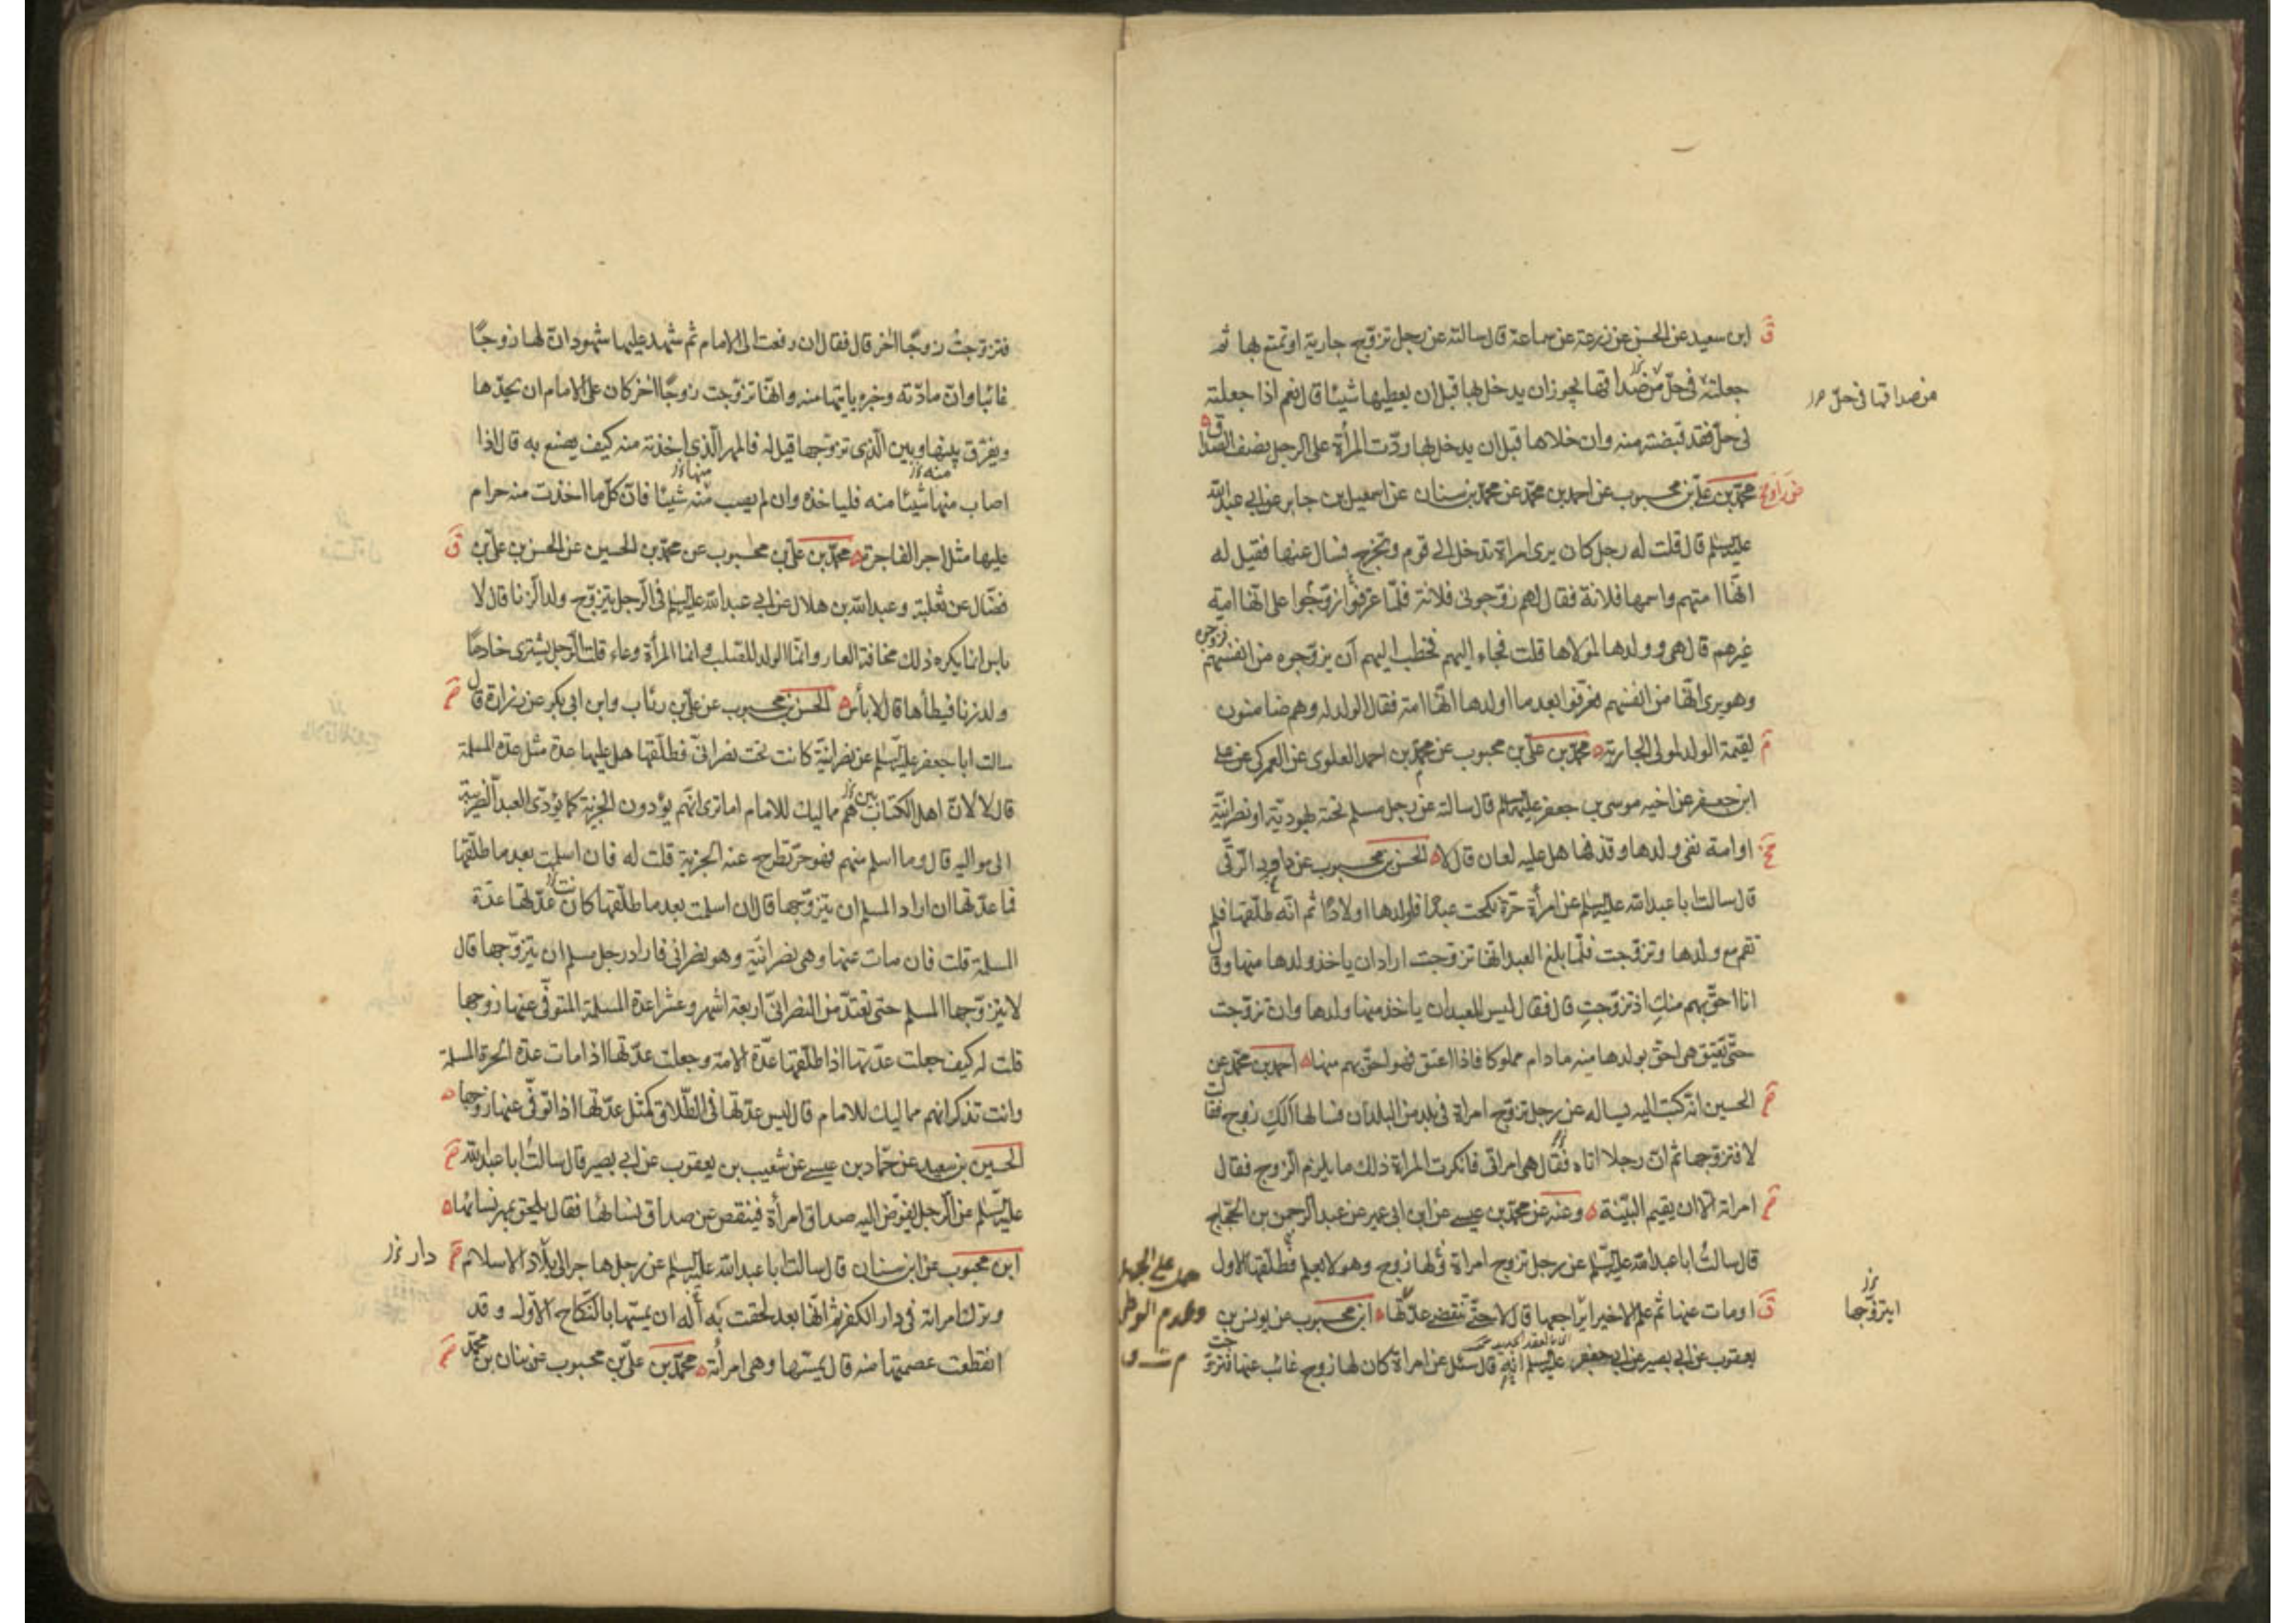 ابن سعيد عن الحسن عن زرعة عن سماعة قال سالته عن رجل تزوّج جارية او تمتع بها ثم
جعلته فى حلّ من صداقها يجوز ان يدخل بها قبل ان يعطيها شيئا قال نعم اذا جعلته
من صداقها فى حلّ
فى حلّ فقد قبضته منه وان خلاها قبل ان يدخل بها ردّت المرأة على الرجل نصف الصداق
محمّد بن علىّ بن محبوب عن احمد بن محمّد عن محمّد بن سنان عن اسمعيل بن جابر عن ابى عبدالله
عليه السلم قال قلت له رجل كان يرى امراة تدخل الى قوم وتخرج فسال عنها فقيل له
انّها امتهم واسمها فلانة فقال لهم زوّجونى فلانة فلمّا عرفوا زوّجوا على انّها امة
غيرهم قال هى وولدها لمولاها قلت فجاء اليهم فخطب اليهم ان يزوّجوه من انفسهم فزوجوه
وهو يرى انّها من انفسهم فعرفوا بعد ما اولدها انّها امة فقال الولد له وهم ضامنون
لقيمة الولد لمولى الجارية محمّد بن علىّ بن محبوب عن محمّد بن احمد العلوى عن العمركى عن على
ابن جعفر عن اخيه موسى بن جعفر عليه السلم قال سالته عن رجل مسلم تحته يهوديّة او نصرانيّة
او امة نفى ولدها وقذفها هل عليه لعان قال لا الحسن بن محبوب عن داود الرقّى
قال سالت ابا عبدالله عليه السلم عن امرأة حرّة نكحت عبدًا فاولدها اولادًا ثم انّه طلّقها فلم
تقم مع ولدها وتزوّجت فلمّا بلغ العبد انّها تزوجت اراد ان ياخذ ولدها منها وقال
انا احقّ بهم منكِ اذ تزوّجتِ قال فقال ليس للعبد ان ياخذ منها ولدها وان تزوّجت
حتّى يعتق هى احقّ بولدها منه ما دام مملوكا فاذا اعتق فهو احقّ بهم منها احمد بن محمّد عن
الحسين انّه كتب اليه يساله عن رجل تزوج امراة فى بلد من البلدان فسالها الكِ زوج فقالت
لا فتزوّجها ثم انّ رجلا اتاه فقال هى امراتى فانكرت المراة ذلك ما يلزم الزوج فقال
امراته الا ان يقيم البيّنة وعنه عن محمّد بن عيسى عن ابن ابى عمير عن عبد الرحمن بن الحجّاج
قال سالتُ ابا عبدالله عليه السّلم عن رجل تزوج امراة ولها زوج وهو لا يعلم فطلّقها الاول
او مات عنها ثم علم الاخير ايراجعها قال لا حتّى تنقضى عدّتها ابن محبوب عن يونس بن
ايتزوّجها
يعقوب عن ابى بصير عن ابى جعفر عليه السلم انّه قال سئل عن امراة كان لها زوج غائب عنها فتزوجت
فتزوّجت زوجًا اخر قال فقال ان رفعت الى الامام ثم شهد عليها شهود انّ لها زوجًا
غائبا وانّ مادّته وخبره ياتيها منه وانّها تزوّجت زوجًا اخر كان على الامام ان يحدّها
ويفرّق بينها وبين الّذى تزوّجها قيل له فالمهر الّذى اخذته منه كيف يصنع به قال اذا
اصاب منها شيئا منه فلياخذه وان لم يصب منه شيئا فانّ كلّ ما اخذت منه حرام
عليها مثل اجر الفاجرة محمّد بن علىّ بن محبوب عن محمّد بن الحسين عن الحسن بن علىّ بن
فضّال عن ثعلبة وعبدالله بن هلال عن ابى عبدالله عليه السلم فى الرجل يتزوّج ولد الزنا قال لا
باس انما يكره ذلك مخافة العار وانّما الولد للصّلب وانما المرأة وعاء قلت الرجل يشترى خادمًا
ولد زنا فيطأها قال لا بأس الحسن بن محبوب عن علىّ بن رئاب وابن ابى بكير عن زرارة قال
سالت ابا جعفر عليه السّلم عن نصرانيّة كانت تحت نصرانىّ فطلّقها هل عليها عدة مثل عدّة المسلمة
قال لا لانّ اهل الكتاب هم مماليك للامام اما ترى انّهم يؤدون الجزية كما يؤدّى العبد الضريبة
الى مواليه قال وما اسلم منهم فهو حرّ تطرح عنه الجزية قلت له فان اسلمت بعد ما طلّقها
فما عدّتها ان اراد المسلم ان يتزوّجها قال ان اسلمت بعد ما طلّقها كانت عدّتها عدّة
المسلمة قلت فان مات عنها وهى نصرانيّة وهو نصرانى فاراد رجل مسلم ان يتزوّجها قال
لا يتزوّجها المسلم حتى تعتدّ من النصرانىّ اربعة اشهر وعشرا عدة المسلمة المتوفّى عنها زوجها
قلت له كيف جعلت عدّتها اذا طلّقها عدّة الامة وجعلت عدّتها اذا مات عدّة الحرة المسلمة
وانت تذكر انهم مماليك للامام قال ليس عدّتها فى الطّلاق كمثل عدّتها اذا توفّى عنها زوجها
الحسين بن سعيد عن حمّاد بن عيسى عن شعيب بن يعقوب عن ابى بصير قال سالتُ ابا عبدالله
عليه السّلم عن الرّجل يفوّض اليه صداق امرأة فينقص عن صداق نسائها فقال يلحق بمهر نسائها
ابن محبوب عن ابن سنان قال سالت ابا عبدالله عليه السلم عن رجل هاجر الى بلاد الاسلام
دار
وترك امراته فى دار الكفر ثم انّها بعد لحقت به أله ان يمسّها بالنّكاح الاوّل وقد
انقطعت عصمتها منه قال يمسّها وهى امرأته محمّد بن علىّ بن محبوب عن بنان بن محمّد